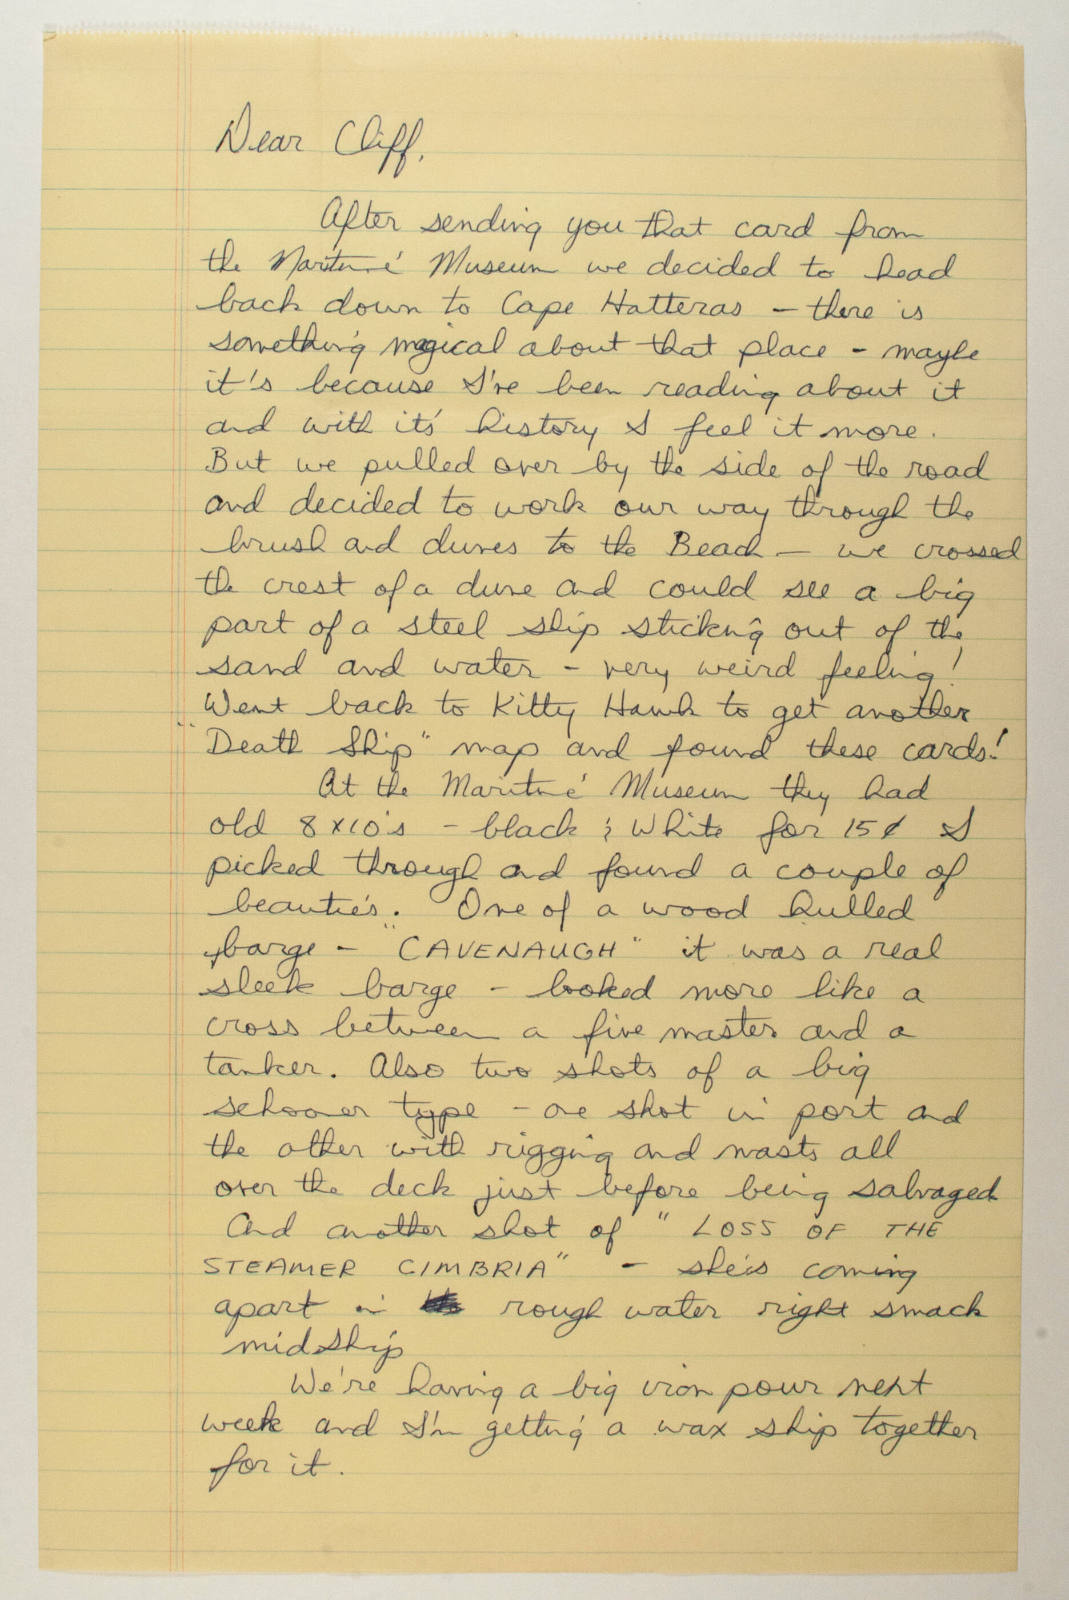 Dear Cliff,
After sending you that card from
the Maritime Museum we decided to head
back down to Cape Hatteras – there is
something magical about that place – maybe
it's because I've been reading about it
and with it's history I feel it more.
But we pulled over by the side of the road
and decided to work our way through the
brush and dunes to the Beach – we crossed
the crest of a dune and could see a big
part of a steel ship sticking out of the
sand and water – very weird feeling!
Went back to Kitty Hawk to get another
"Death Ship" map and found these cards!
At the Maritime Museum they had
old 8x10's – black & White for 15¢ I
picked through and found a couple of
beautie's. One of a wood hulled
barge – "CAVENAUGH" it was a real
sleek barge – looked more like a
cross between a five master and a
tanker. Also two shots of a big
schooner type – one shot in port and
the other with rigging and masts all
over the deck just before being salvaged
And another shot of "LOSS OF THE
STEAMER CIMBRIA" – she's coming
apart in rough water right smack
midship
We're having a big iron pour next
week and I'm getting a wax ship together
for it.